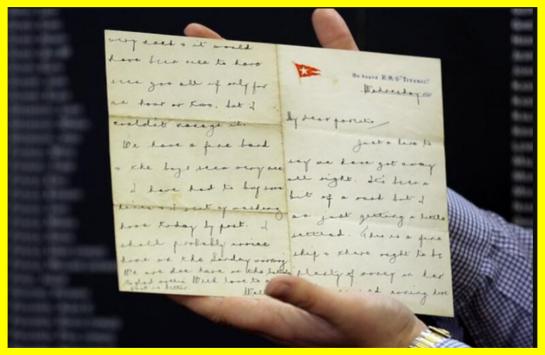 On board R.M.S. "Titanic".
Wednesday 191
My dear parents,
Just a line to
say we have got away
all right. It's been a
bit of a rush but I
am just getting a little
settled. This is a fine
ship & there ought to be
plenty of money on her
missed coming home
very much & it would
have been nice to have
seen you all if only for
an hour or two, but I
couldn't manage it.
We have a fine band
& the boys seem very nice
I have had to buy some
linen & I sent my washing
home today by post. I
shall probably arrive
home on the Sunday morning
We are due here on the
glad With love to
is better